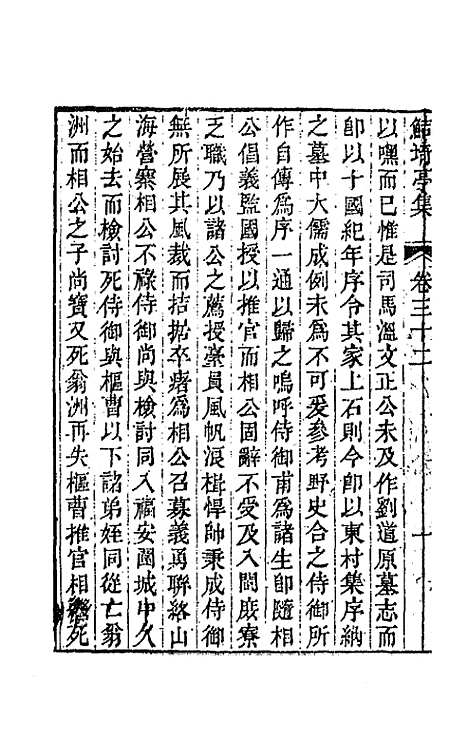 鮚埼亭集　卷三十二　十
以嘿而已惟是司馬溫文正公未及作劉道原墓志而
卽以十國紀年序令其家上石則今卽以東村集序納
之墓中大儒成例未爲不可爰參考野史合之侍御所
作自傳爲序一通以歸之嗚呼侍御甫爲諸生卽隨相
公倡義監國授以推官而相公固辭不受及入閩庶寮
乏職乃以諸公之薦授臺員風帆浪楫悍帥秉成侍御
無所展其風裁而拮据卒瘏爲相公召募義勇聯絡山
海營寨相公不祿侍御尚與檢討同入福安圍城中久
之始去而檢討死侍御與樞曹以下諸弟姪同從亡翁
洲而相公之子尚寶又死翁洲再失樞曹推官相繼死